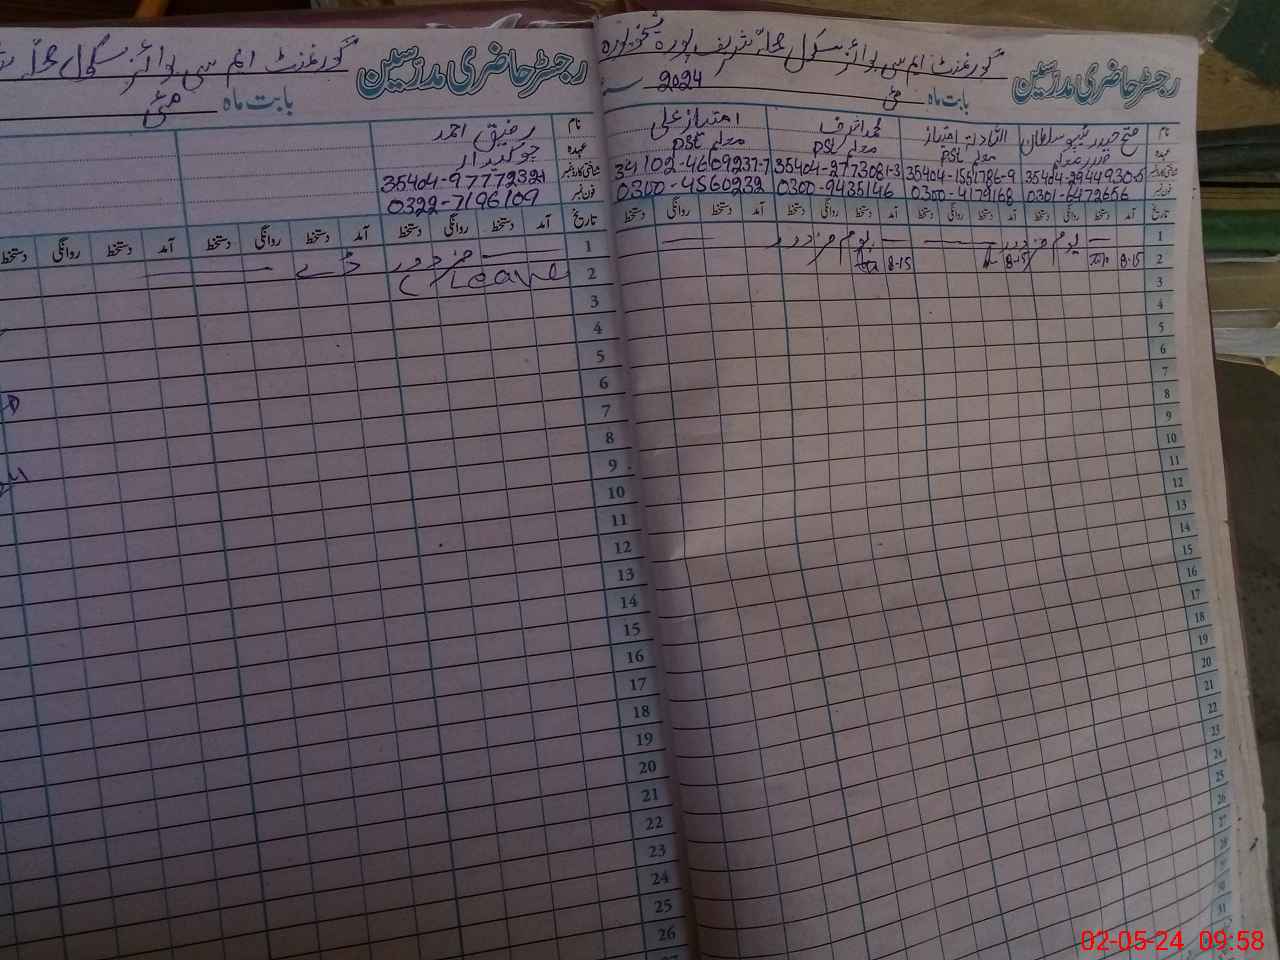 رجسٹر حاضری مدرسین گورنمنٹ ایم سی بوائز سکول محلہ شریف پورہ شیخوپورہ
بابت ماہ مئی 2024
نام فتح حیدر ٹیپو سلطان امتیاز محمد اشرف امتیاز علی
عہدہ معلم PST معلم PST معلم PST
شناختی کارڈ نمبر 35404-1551786-9 35404-2773081-3 34102-4609237-7
فون نمبر 0301-6472656 0300-4179168 0300-9435146 0300-4560232
تاریخ آمد دستخط روانگی دستخط آمد دستخط روانگی دستخط آمد دستخط روانگی دستخط آمد دستخط روانگی دستخط
1 یوم مزدور یوم مزدور
2 8-15 8-15 8-15
3
4
5
6
7
8
9
10
11
12
13
14
15
16
17
18
19
20
21
22
23
24
25
26
27
28
30
31
رجسٹر حاضری مدرسین گورنمنٹ ایم سی بوائز سکول محلہ
بابت ماہ مئی
نام رفیق احمد
عہدہ چوکیدار
شناختی کارڈ نمبر
فون نمبر 0322-7196109
تاریخ آمد دستخط روانگی دستخط آمد دستخط روانگی دستخط آمد دستخط روانگی دستخط
1 مزدور ڈے
2 Leave
3
4
5
6
7
8
9
10
11
12
13
14
15
16
17
18
19
20
21
22
23
24
25
26
27
02-05-24 09:58